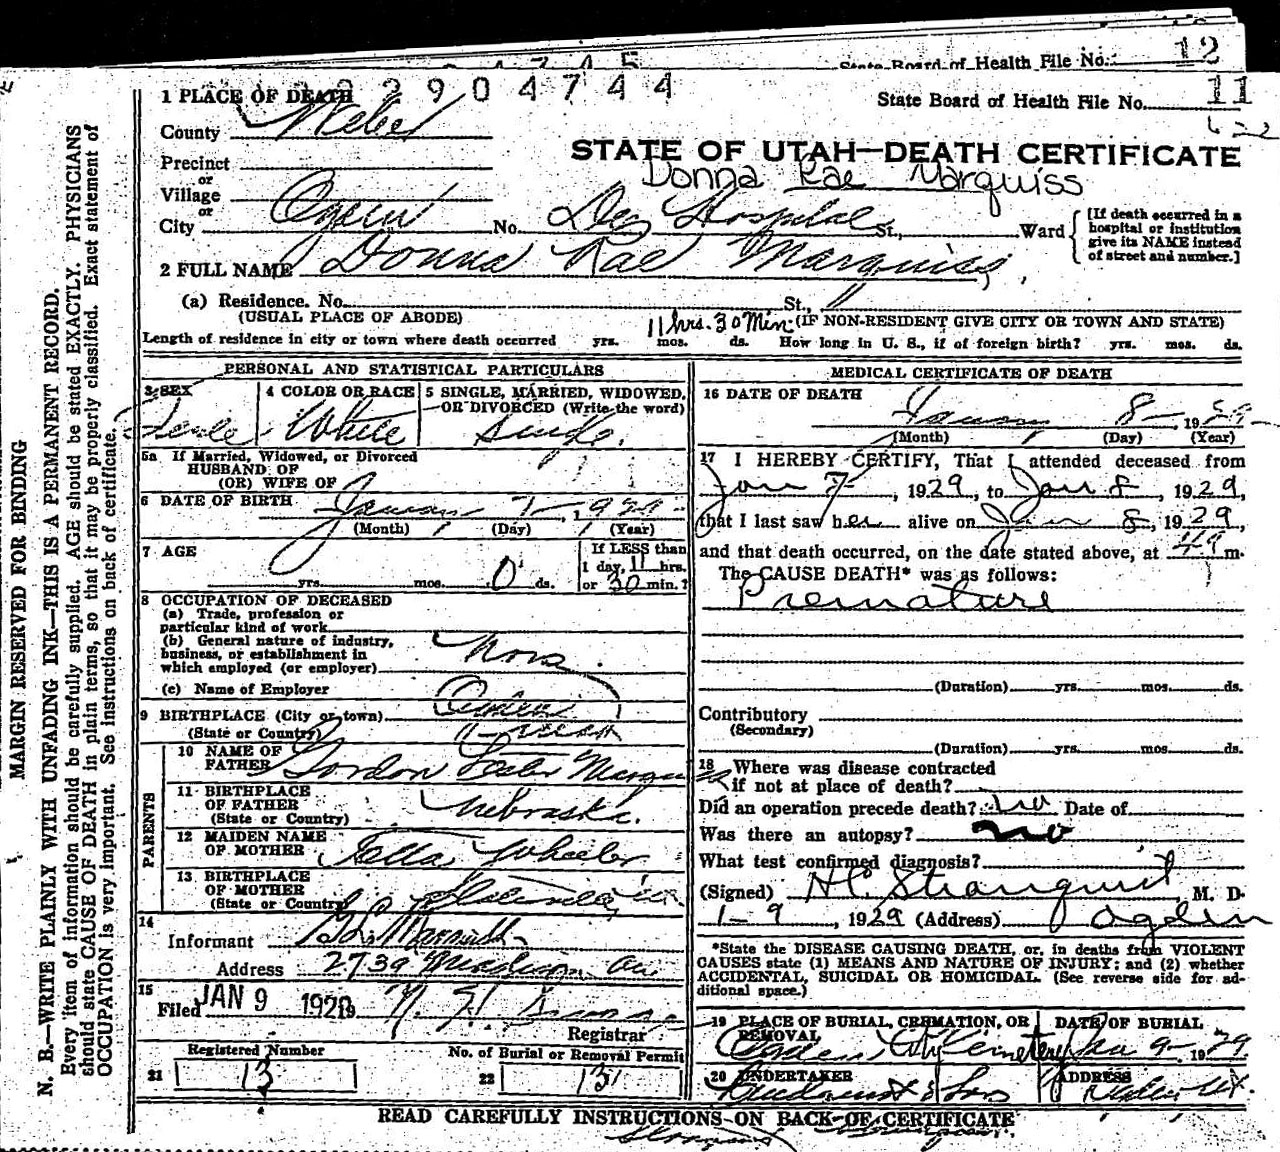 State Board of Health File No. 12
2904744
State Board of Health File No. 11
1 PLACE OF DEATH
County Weber
STATE OF UTAH—DEATH CERTIFICATE
Precinct
or
Donna Rae Marquiss
Village
or
City Ogden No. Dee Hospital St., Ward
[If death occurred in a
hospital or institution
give its NAME instead
of street and number.]
2 FULL NAME Donna Rae Marquiss
(a) Residence. No. St.,
(USUAL PLACE OF ABODE)
11 hrs. 30 Min (IF NON-RESIDENT GIVE CITY OR TOWN AND STATE)
Length of residence in city or town where death occurred yrs. mos. ds. How long in U. S., if of foreign birth? yrs. mos. ds.
PERSONAL AND STATISTICAL PARTICULARS
3 SEX
4 COLOR OR RACE White
5 SINGLE, MARRIED, WIDOWED,
OR DIVORCED (Write the word)
Single.
5a If Married, Widowed, or Divorced
HUSBAND OF
(OR) WIFE OF
6 DATE OF BIRTH January 7- 1929
(Month) (Day) (Year)
7 AGE
yrs. mos. 0 ds.
If LESS than
1 day, 11 hrs.
or 30 min.?
8 OCCUPATION OF DECEASED
(a) Trade, profession or
particular kind of work
(b) General nature of industry,
business, or establishment in
which employed (or employer)
(c) Name of Employer
9 BIRTHPLACE (City or town) Ogden
(State or Country)
PARENTS
10 NAME OF
FATHER Gordon Lester
11 BIRTHPLACE
OF FATHER
(State or Country) Nebraska.
12 MAIDEN NAME
OF MOTHER Wheeler
13 BIRTHPLACE
OF MOTHER
(State or Country)
14
Informant
Address 2739 Madison Ave
15
Filed JAN 9 1929
Registrar
Registered Number
21 13
No. of Burial or Removal Permit
22 13
MEDICAL CERTIFICATE OF DEATH
16 DATE OF DEATH
January 8- 1929
(Month) (Day) (Year)
17 I HEREBY CERTIFY, That I attended deceased from
Jan 7, 1929, to Jan 8, 1929,
that I last saw her alive on Jan 8, 1929,
and that death occurred, on the date stated above, at m.
The CAUSE DEATH* was as follows:
Premature
(Duration) yrs. mos. ds.
Contributory
(Secondary)
(Duration) yrs. mos. ds.
18 Where was disease contracted
if not at place of death?
Did an operation precede death? no Date of
Was there an autopsy? no
What test confirmed diagnosis?
(Signed) H.C. Stranquist M. D.
1-9, 1929 (Address) Ogden
*State the DISEASE CAUSING DEATH, or, in deaths from VIOLENT
CAUSES state (1) MEANS AND NATURE OF INJURY; and (2) whether
ACCIDENTAL, SUICIDAL OR HOMICIDAL. (See reverse side for ad-
ditional space.)
19 PLACE OF BURIAL, CREMATION, OR
REMOVAL
Ogden City Cemetery
DATE OF BURIAL
Jan 9- 1929
20 UNDERTAKER
& Sons
ADDRESS
Ogden Ut.
READ CAREFULLY INSTRUCTIONS ON BACK OF CERTIFICATE
MARGIN RESERVED FOR BINDING
N. B.—WRITE PLAINLY WITH UNFADING INK—THIS IS A PERMANENT RECORD.
Every item of information should be carefully supplied. AGE should be stated EXACTLY. PHYSICIANS
should state CAUSE OF DEATH in plain terms, so that it may be properly classified. Exact statement of
OCCUPATION is very important. See Instructions on back of certificate.